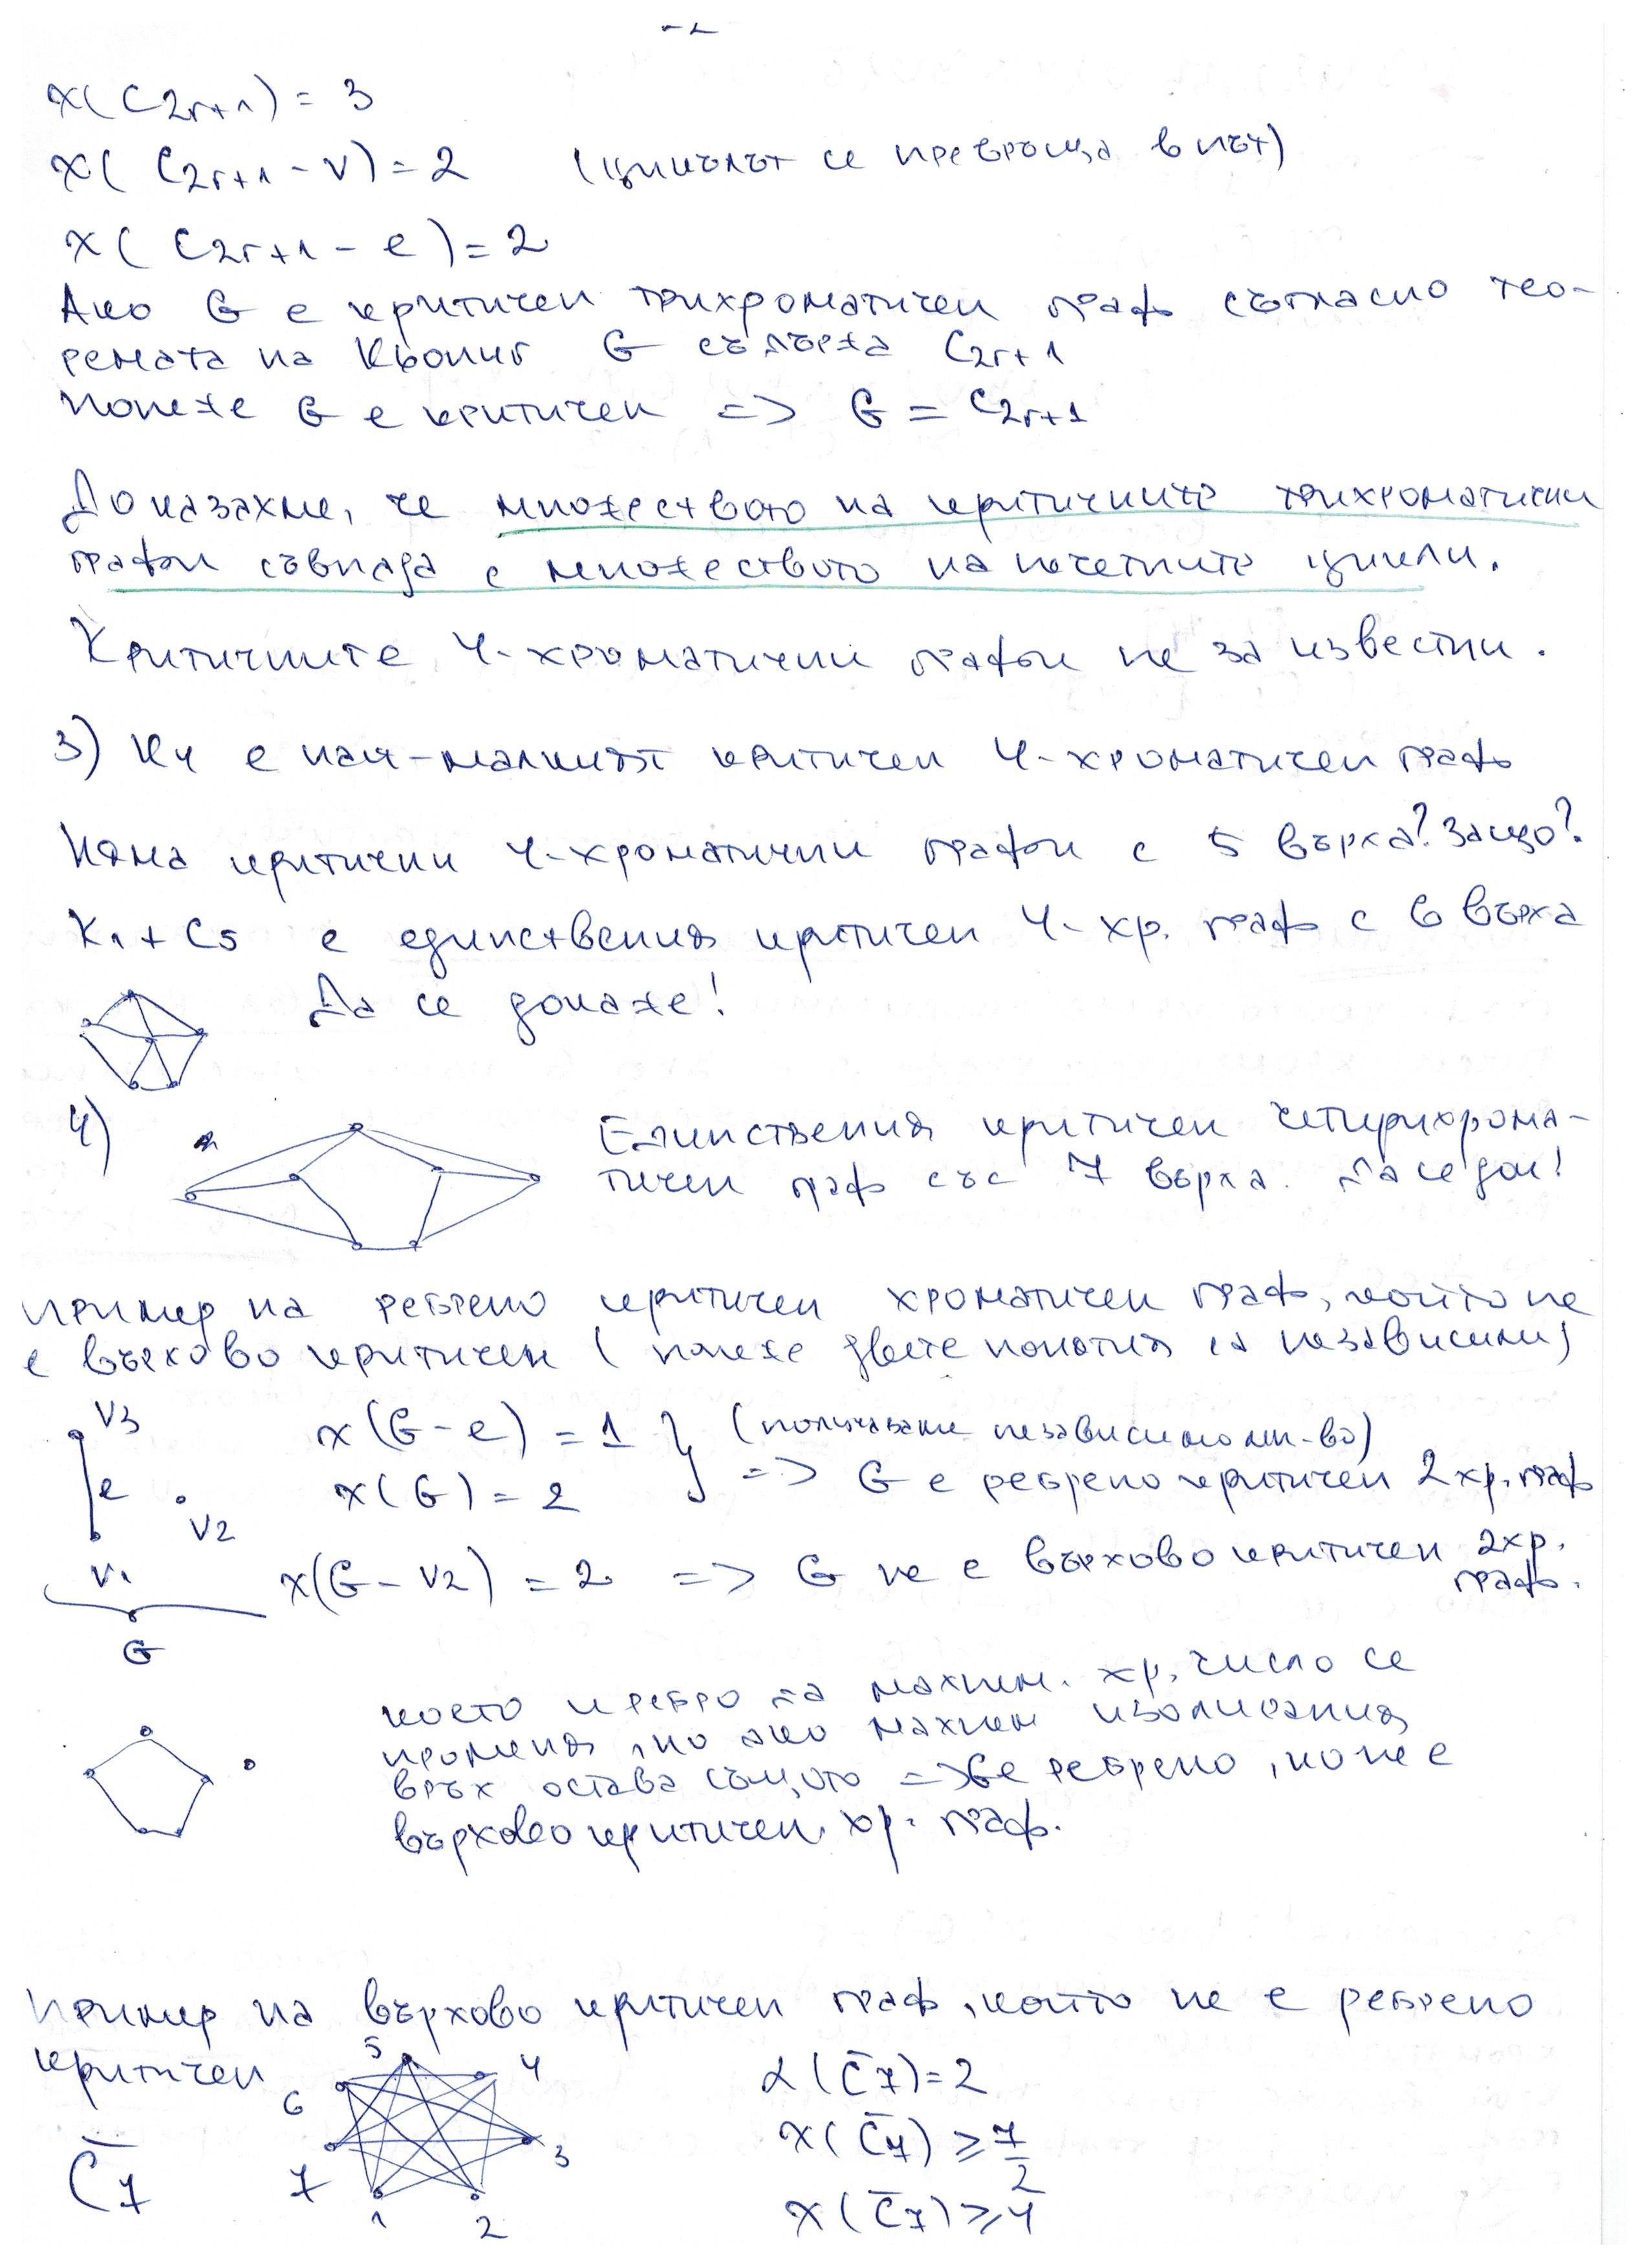 -2-
χ(C2r+1) = 3
χ(C2r+1 - v) = 2 (цикълът се превръща в път)
χ(C2r+1 - e) = 2
Ако G е критичен трихроматичен граф съгласно тео-
ремата на Кьониг G съдържа C2r+1
Понеже G е критичен => G = C2r+1
Доказахме, че множеството на критичните трихроматични
графи съвпада с множеството на нечетните цикли.
Критичните 4-хроматични графи не за известни.
3) K4 е най-малкият критичен 4-хроматичен граф
Няма критични 4-хроматични графи с 5 върха? Защо?
K1 + C5 е единствения критичен 4-хр. граф с 6 върха
Да се докаже!
4) Единствения критичен четирихрома-
тичен граф със 7 върха. Да се док!
Пример на реброво критичен хроматичен граф, който не
е върхово критичен (понеже двете понятия са независими)
V3
e
V2
V1
G
χ(G-e) = 1 } (получаваме независимо мн-во)
χ(G) = 2 => G е реброво критичен 2хр. граф
χ(G - V2) = 2 => G не е върхово критичен 2хр.
граф.
което и ребро да махнем. хр. число се
променя, но ако махнем изолирания
връх остава същото => G е реброво, но не е
върхово критичен хр. граф.
Пример на върхово критичен граф, който не е реброво
критичен
5 4 6 3 7 1 2
C̄7
α(C̄7) = 2
χ(C̄7) ≥ 7/2
χ(C̄7) ≥ 4